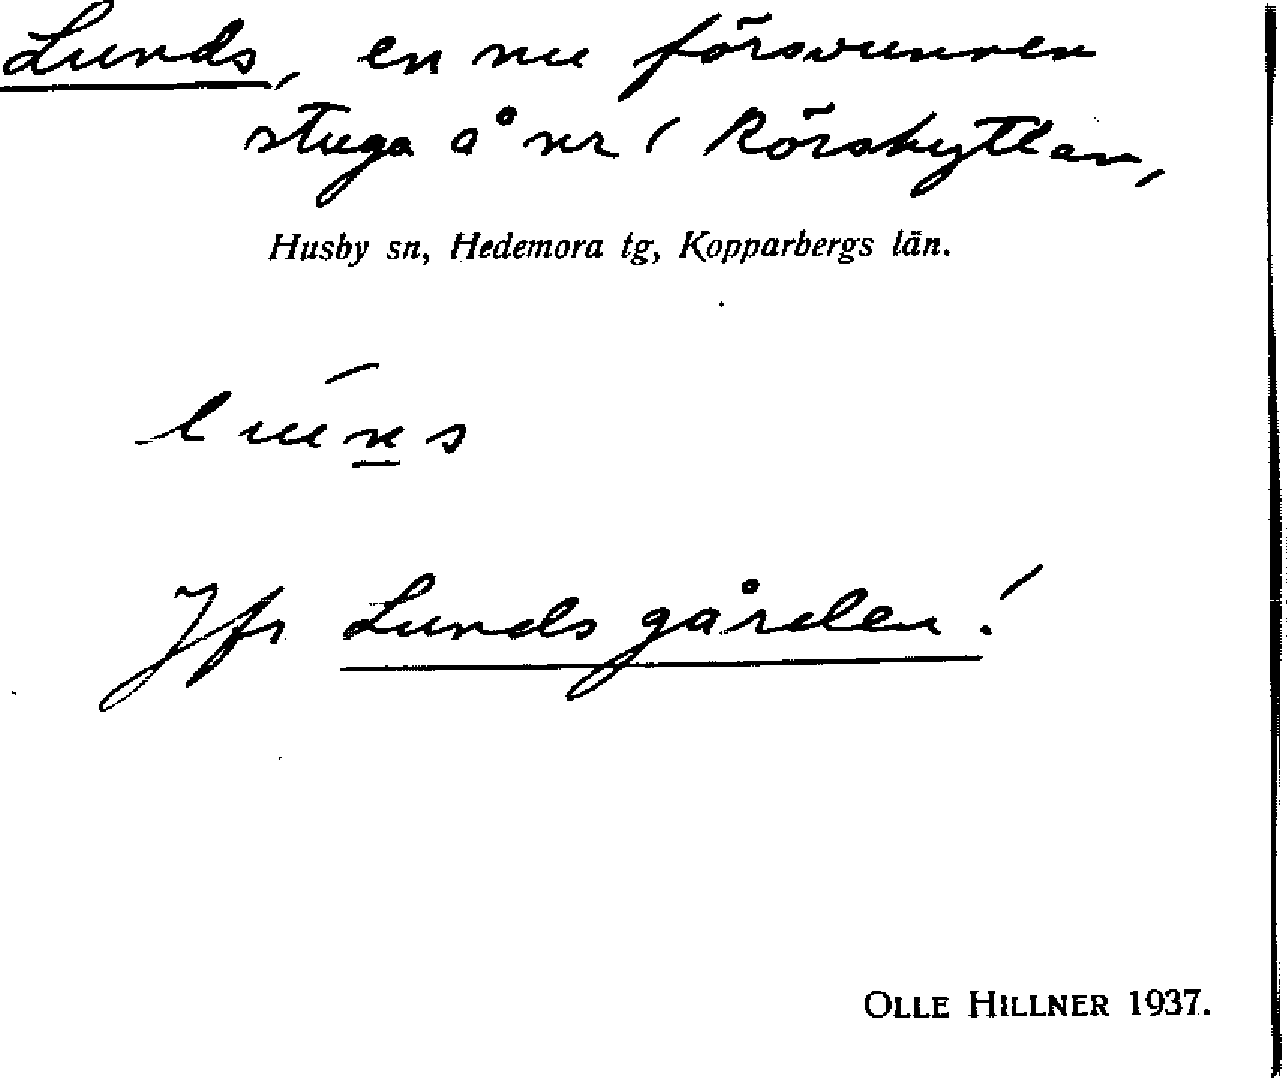 Lunds, en nu försvunnen
stuga å nr 1 Rörshyttan,
Husby sn, Hedemora tg, Kopparbergs län.
lúns
Jfr Lundsgården!
OLLE HILLNER 1937.